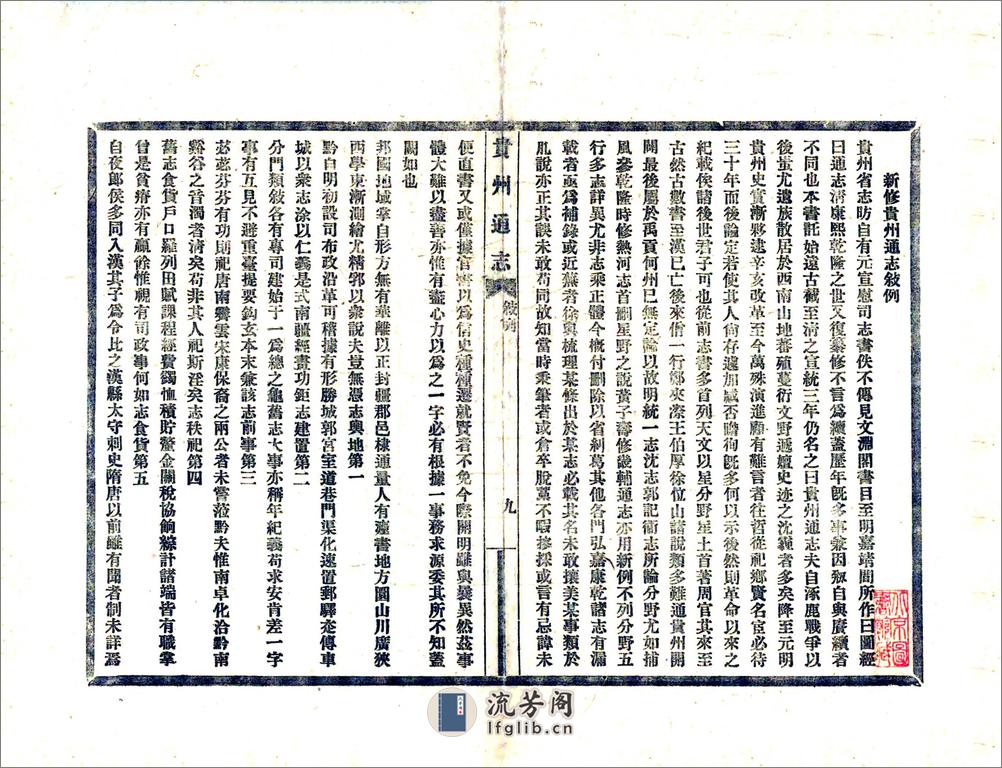 新修貴州通志敍例
貴州省志昉自有元宣慰司志書佚不傳見文淵閣書目至明嘉靖間所作曰圖經
曰通志淸康熙乾隆之世又復纂修不言爲續蓋歷年旣多事兼因孤自與廣續者
不同也本書託始遠古截至淸之宣統三年仍名之曰貴州通志夫自涿鹿戰爭以
後蚩尤遺族散居於西南山地蕃殖蔓衍文野遞嬗史迹之沈霾者多矣降至元明
貴州史實漸夥逮辛亥改革至今萬殊演進顧有難言者往哲從祀鄕賢名宦必待
三十年而後論定若使其人尙存遽加臧否瞻徇旣多何以示後然則革命以來之
紀載俟諸後世君子可也從前志書多首列天文以星分野星土首著周官其來至
古然古敷書至漢已亡後來僧一行鄭夾漈王伯厚徐位山諸說類多難通貴州開
闢最後屬於禹貢何州已無定論以故明統一志沈志郭記衞志所論分野尤如捕
風參乾隆時修熱河志首刪星野之說黃子壽修畿輔通志亦用新例不列分野五
行多志詳異尤非志乘正體今槪付刪除以省剿葛其他各門弘嘉康乾諸志有漏
載者亟爲補錄或近蕪者徐與梳理某條出於某志必載其名未敢攘美某事類於
凡說亦正其誤未敢苟同故知當時秉筆者或倉卒脫藁不暇摻採或言有忌諱未
貴州通志
敍例
九
便直書又或僅據官書以爲信史種種遷就賢者不免今際開明雖與曩異然茲事
體大難以盡善亦惟有盡心力以爲之一字必有根據一事務求源委其所不知蓋
闕如也
邦國地域掌自形方無有華離以正封疆郡邑棣通量人有廬書地方圜山川廣狹
西學東漸測繪尤精郭以衆說夫豈無憑志輿地第一
黔自明初設司布政沿革可稽據有形勝城郭宮室道巷門渠化速置郵驛楚傳車
城以衆志涂以仁義是式南疆經畫功鉅志建置第二
分門類敍各有專司建始于一爲總之龜舊志大事亦稱年紀義苟求安肯差一字
事有互見不避重臺提要鈎玄本末兼該志前事第三
苾苾芬芬有功則祀唐南霽雲宋康保裔之兩公者未嘗涖黔夫惟南卓化洽黔南
谿谷之音濁者淸矣苟非其人祀斯淫矣志秩祀第四
舊志食貨戶口羅列田賦課程經費蠲恤積貯釐金關稅協餉綜計諸端皆有職掌
曾是貧瘠亦有贏餘惟視有司政事何如志食貨第五
自夜郎侯多同入漢其子爲令比之漢縣太守刺史隋唐以前雖有聞者制未詳焉
流芳阁
lfglib.cn